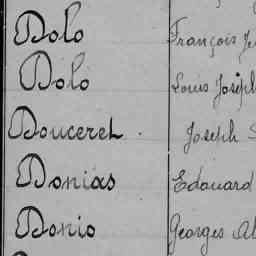 Dolo François
Dolo Louis Joseph
Douceret Joseph
Donias Edouard
Donio Georges Al